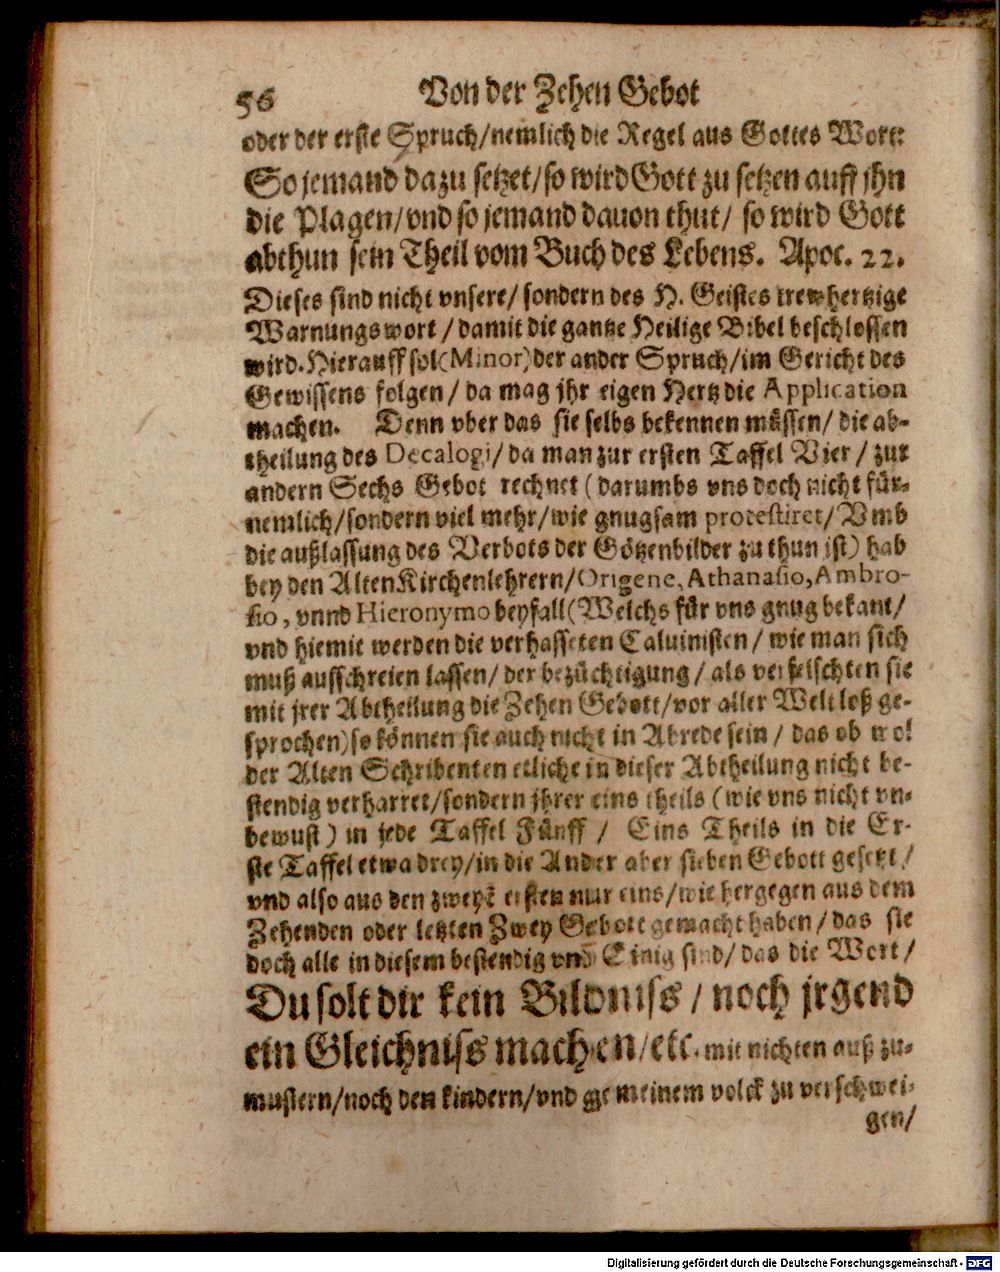 56 Von der Zehen Gebot
oder der erste Spruch/nemlich die Regel aus Gottes Wort:
So jemand dazu setzet/so wird Gott zu setzen auff jhn
die Plagen/vnd so jemand dauon thut/ so wird Gott
abthun sein Theil vom Buch des Lebens. Apoc. 22.
Dieses sind nicht vnsere/ sondern des H. Geistes trewhertzige
Warnungswort / damit die gantze Heilige Bibel beschlossen
wird. Hierauff sol (Minor) der ander Spruch/im Gericht des
Gewissens folgen / da mag jhr eigen Hertz die Application
machen. Denn vber das sie selbs bekennen müssen/ die ab-
theilung des Decalogi/ da man zur ersten Taffel Vier / zur
andern Sechs Gebot rechnet (darumbs vns doch nicht für-
nemlich/sondern viel mehr/wie gnugsam protestiret/ Vmb
die außlassung des Verbots der Götzenbilder zu thun ist) hab
bey den Alten Kirchenlehrern/Origene, Athanasio, Ambro-
sio, vnnd Hieronymo beyfall (Welchs für vns gnug bekant/
vnd hiemit werden die verhasseten Caluinisten / wie man sich
muß ausschreien lassen/ der bezüchtigung / als verfelschten sie
mit jrer Abtheilung die Zehen Gebott/vor aller Welt loß ge-
sprochen) so können sie auch nicht in Abrede sein / das ob wol
der Alten Schribenten etliche in dieser Abtheilung nicht be-
stendig verharret/sondern jhrer eins theils (wie vns nicht vn-
bewust) in jede Taffel Fünff / Eins Theils in die Er-
ste Taffel etwa drey/in die Ander aber sieben Gebott gesetzt /
vnd also aus den zweyē ersten nur eins/wie hergegen aus dem
Zehenden oder letzten Zwey Gebott gemacht haben / das sie
doch alle in diesem bestendig vnd Einig sind/ das die Wort /
Du solt dir kein Bildniss / noch jrgend
ein Gleichniss machen/etc. mit nichten auß zu-
mustern/noch den kindern/vnd gemeinem volck zu verschwei-
gen/
Digitalisierung gefördert durch die Deutsche Forschungsgemeinschaft - DFG